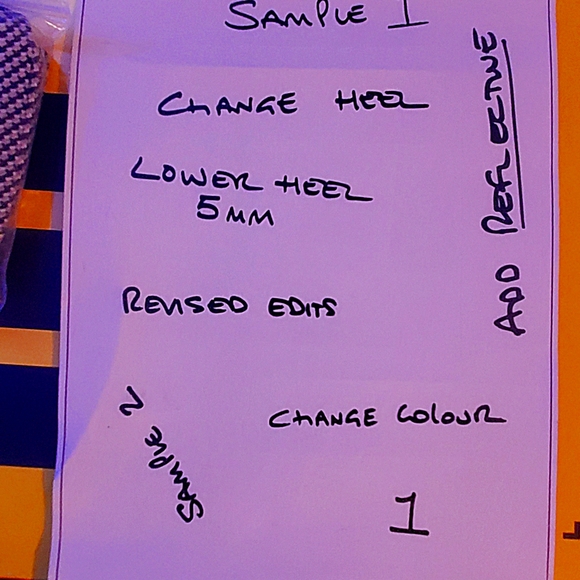 SAMPLE 1
CHANGE HEEL
LOWER HEEL
5MM
ADD REFLECTIVE
REVISED EDITS
SAMPLE 2
CHANGE COLOUR
1